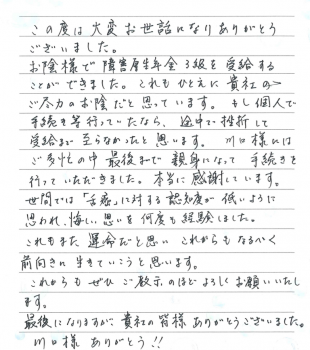 この度は大変お世話になりありがとう
ございました。
お陰様で障害厚生年金3級を受給する
ことができました。これもひとえに貴社の
ご尽力のお陰だと思っています。もし個人で
手続き等行っていたなら、途中で挫折して
受給まで至らなかったと思います。川口様には
ご多忙の中最後まで親身になって手続きを
行っていただきました。本当に感謝しています。
世間では「舌癌」に対する認知度が低いように
思われ、悔しい思いを何度も経験しました。
これもまた運命だと思いこれからもなるべく
前向きに生きていこうと思います。
これからもぜひご教示のほどよろしくお願いいたし
ます。
最後になりますが、貴社の皆様ありがとうございました。
川口様ありがとう!!